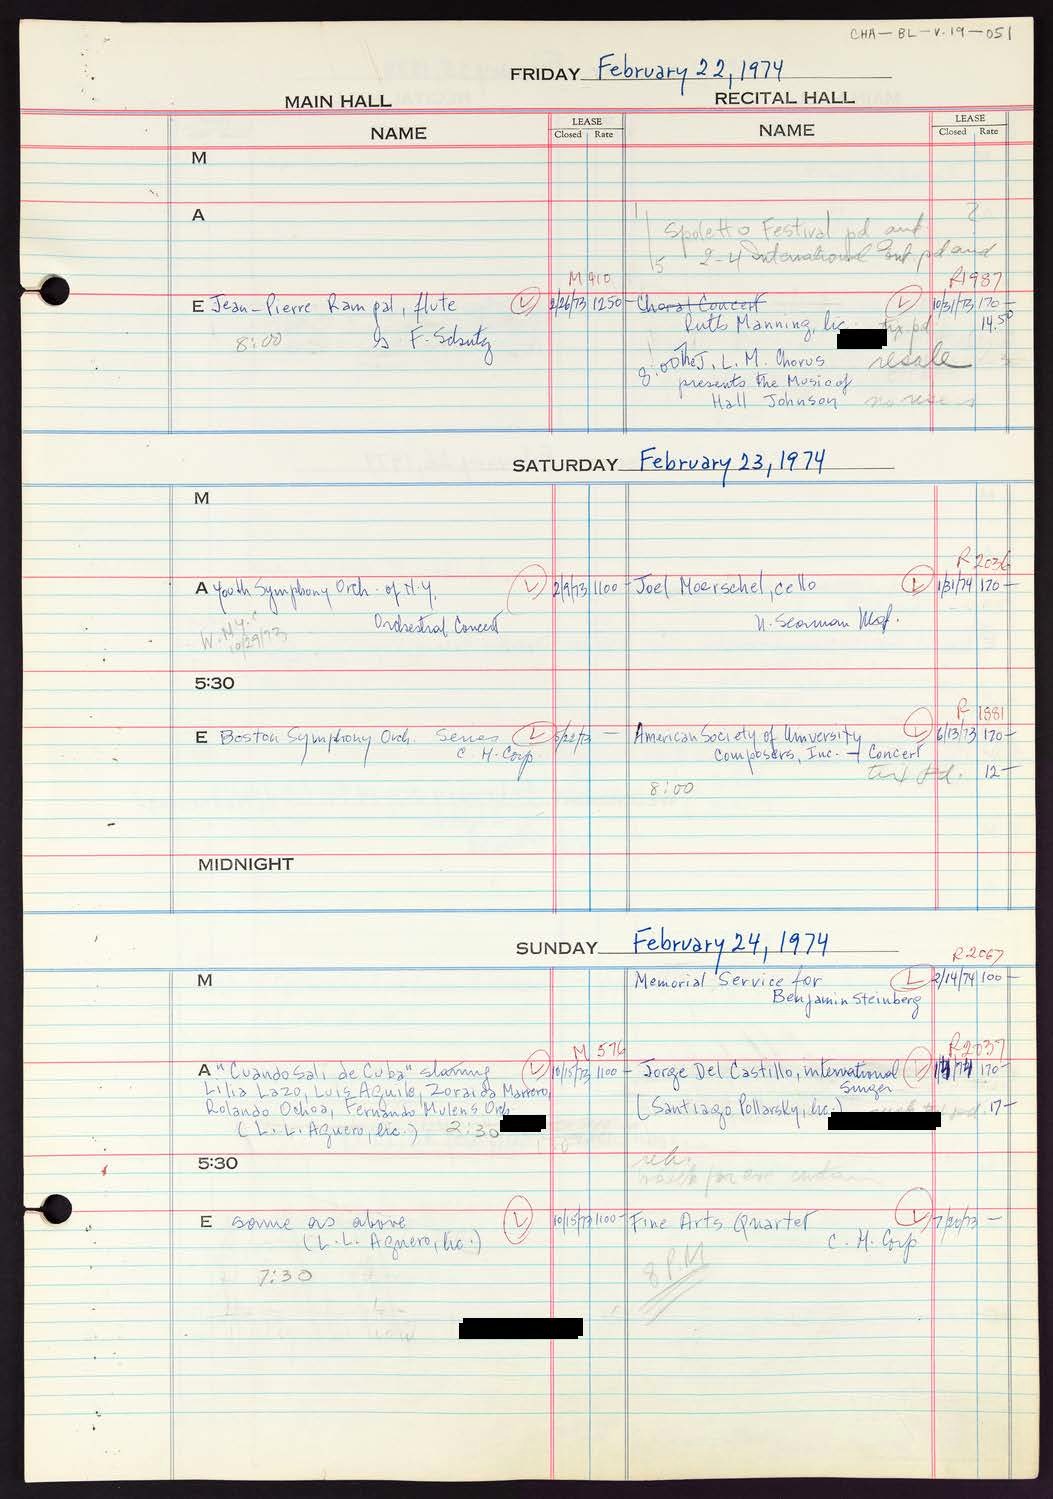 CHA-BL-V.19-051
FRIDAY February 22, 1974
MAIN HALL
RECITAL HALL
NAME
LEASE
Closed Rate
NAME
LEASE
Closed Rate
M
A
Spoletto Festival pd and
2-4 International pd and
M 910
E Jean-Pierre Rampal, flute L 2/26/73 1250-
8:00 F. Schutz
R1987
Choral Concert L 10/31/73 170-
Ruth Manning, lic. tix pd 14.50
8:00 The J. L. M. Chorus resale
presents the Music of
Hall Johnson
SATURDAY February 23, 1974
M
A Youth Symphony Orch. of N.Y. L 2/9/73 1100-
Orchestral Concert
10/29/73
R 2036
Joel Moerschel, cello L 1/31/74 170-
N. Seaman Mgt.
5:30
E Boston Symphony Orch. Series L
C. H. Corp
R 1881
American Society of University L 6/13/73 170-
Composers, Inc. - Concert
12-
8:00
MIDNIGHT
SUNDAY February 24, 1974
M
R2067
Memorial Service for L 2/14/74 100-
Benjamin Steinberg
M 576
A "Cuando Sali de Cuba" starring L 10/15/73 1100-
Lilia Lazo, Luis Aguile, Zoraida Marrero,
Rolando Ochoa, Fernando Mulens Orch.
(L. L. Aguero, lic.) 2:30
R2037
Jorge Del Castillo, international L 170-
Singer
(Santiago Pollarsky, lic.) 17-
5:30
E same as above L 10/15/73 1100-
(L. L. Aguero, lic.)
7:30
Fine Arts Quartet L 7/20/73 -
C. H. Corp
8 P.M